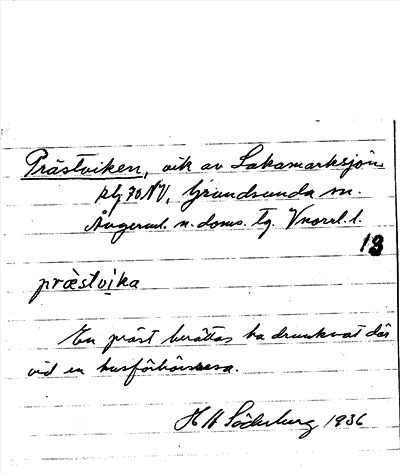 Prästviken, vik av Lakamarksjön
klg 70 NV, Grundsunda sn.
Ångerml. n. doms. tg. Vnorrl. l.
13
præstvi̥ka
En präst berättas ha drunknat där
vid en husförhörsresa.
H A Söderberg 1936